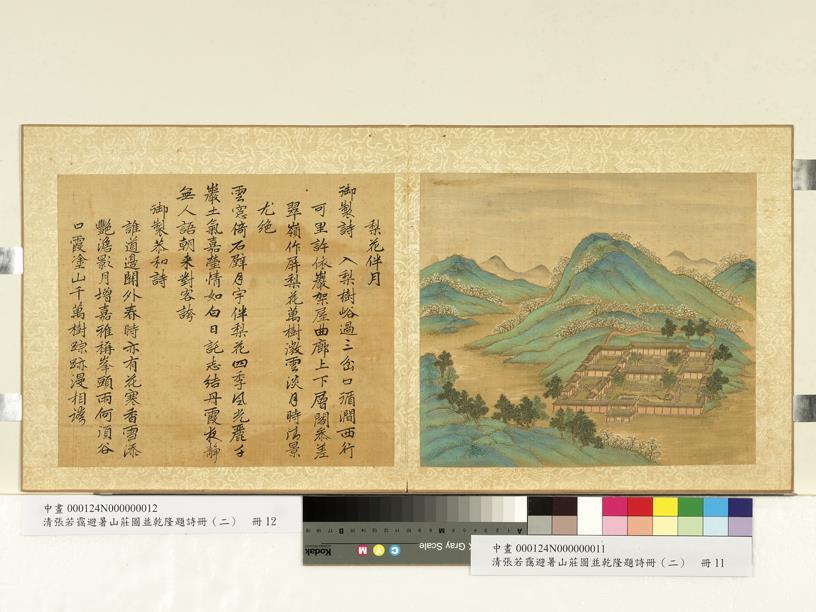 梨花伴月
御製詩 入梨樹峪過三岔口循澗西行
可里許依巖架屋曲廊上下層閣參差
翠嶺作屏梨花萬樹微雲淡月時清景
尤絕
雲窓倚石壁月宇伴梨花四季風光麗千
巖土氣嘉瑩情如白日託志結丹霞夜靜
無人語朝来對客誇
御製恭和詩
誰道邊關外春時亦有花寒香雪添
艷湯影月增嘉雅稱峯頭雨何須谷
口霞塗山千萬樹踪跡漫相誇
中畫 000124N000000012
清張若靄避暑山莊圖並乾隆題詩冊(二) 冊12
Kodak
Gray Scale
A
M
B
C
Y
M
中畫 000124N000000011
清張若靄避暑山莊圖並乾隆題詩冊(二) 冊11